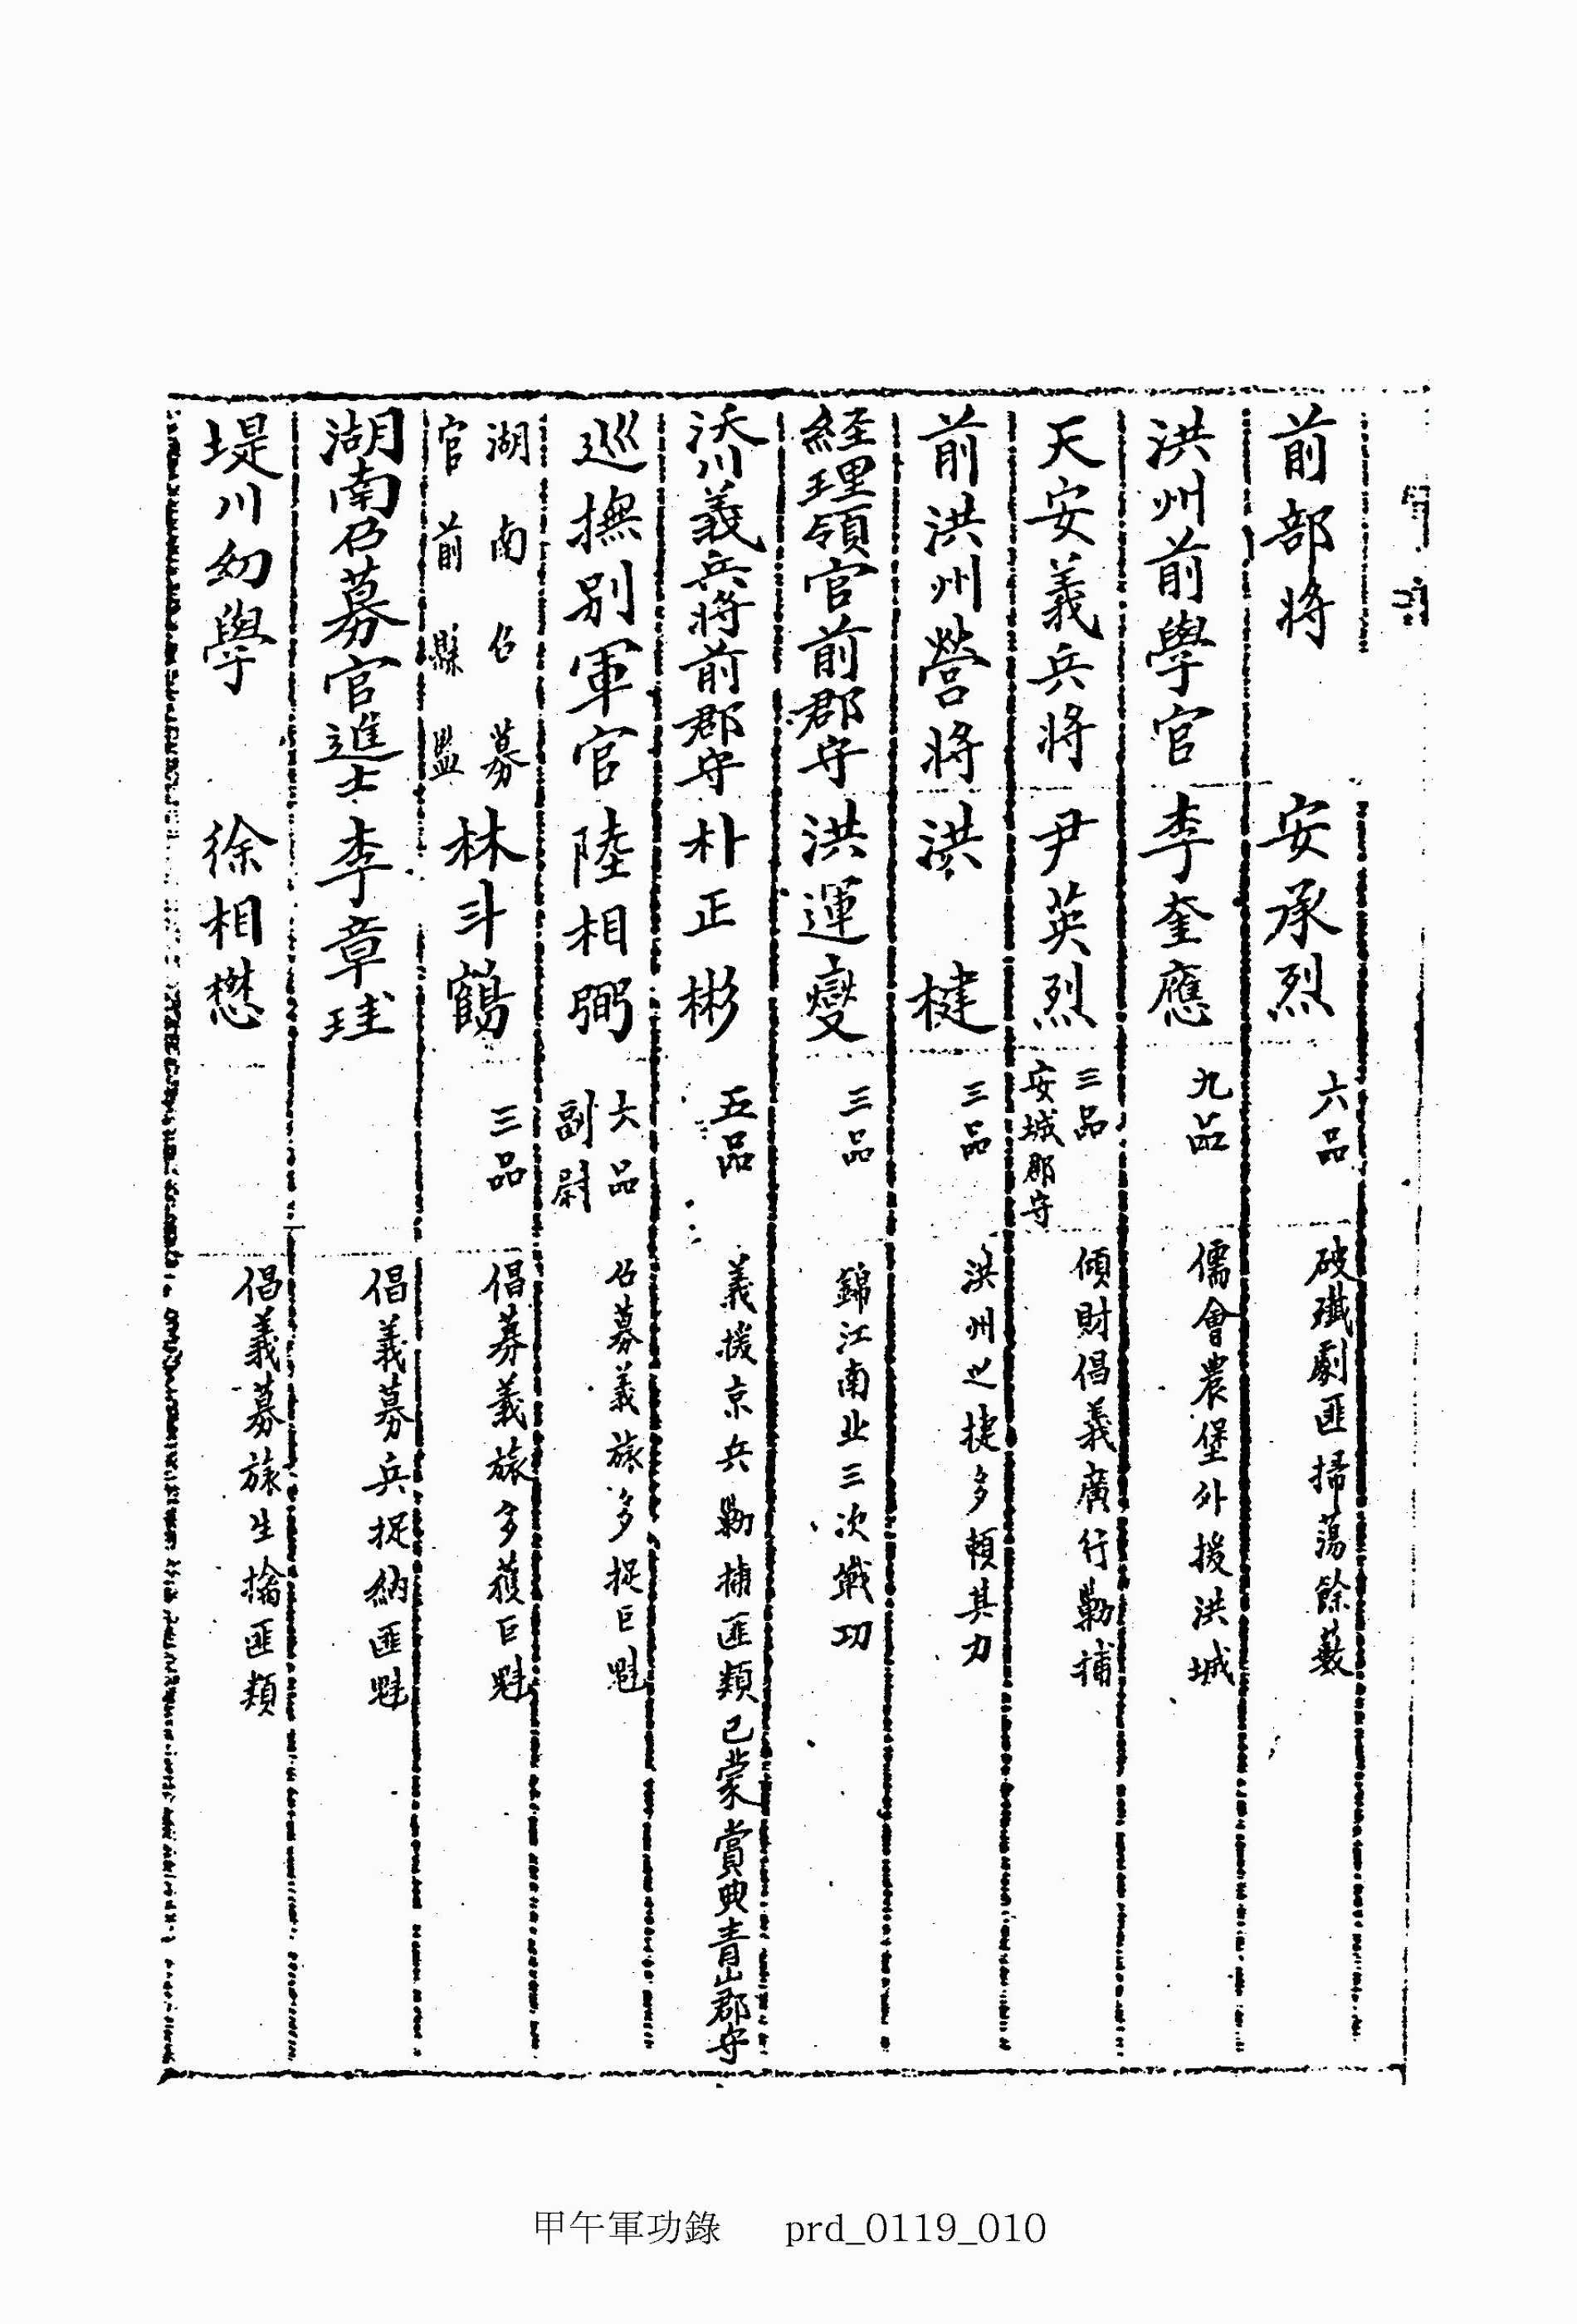 前部將 安承烈 六品 破殲劇匪掃蕩餘藪
洪州前學官 李奎應 九品 儒會農堡外援洪城
天安義兵將 尹英烈 三品 安城郡守 傾財倡義廣行勦捕
前洪州營將 洪楗 三品 洪州之捷多賴其力
経理領官前郡守 洪運燮 三品 錦江南北三次戰功
沃川義兵將前郡守 朴正彬 五品 義援京兵勦捕匪類已蒙賞典青山郡守
巡撫別軍官 陸相弼 六品 副尉 召募義旅多捉巨魁
湖南召募官前縣監 林斗鶴 三品 倡募義旅多獲巨魁
湖南召募官進士 李章珪 倡義募兵捉納匪魁
堤川幼學 徐相懋 倡義募旅生擒匪類
甲午軍功錄 prd_0119_010